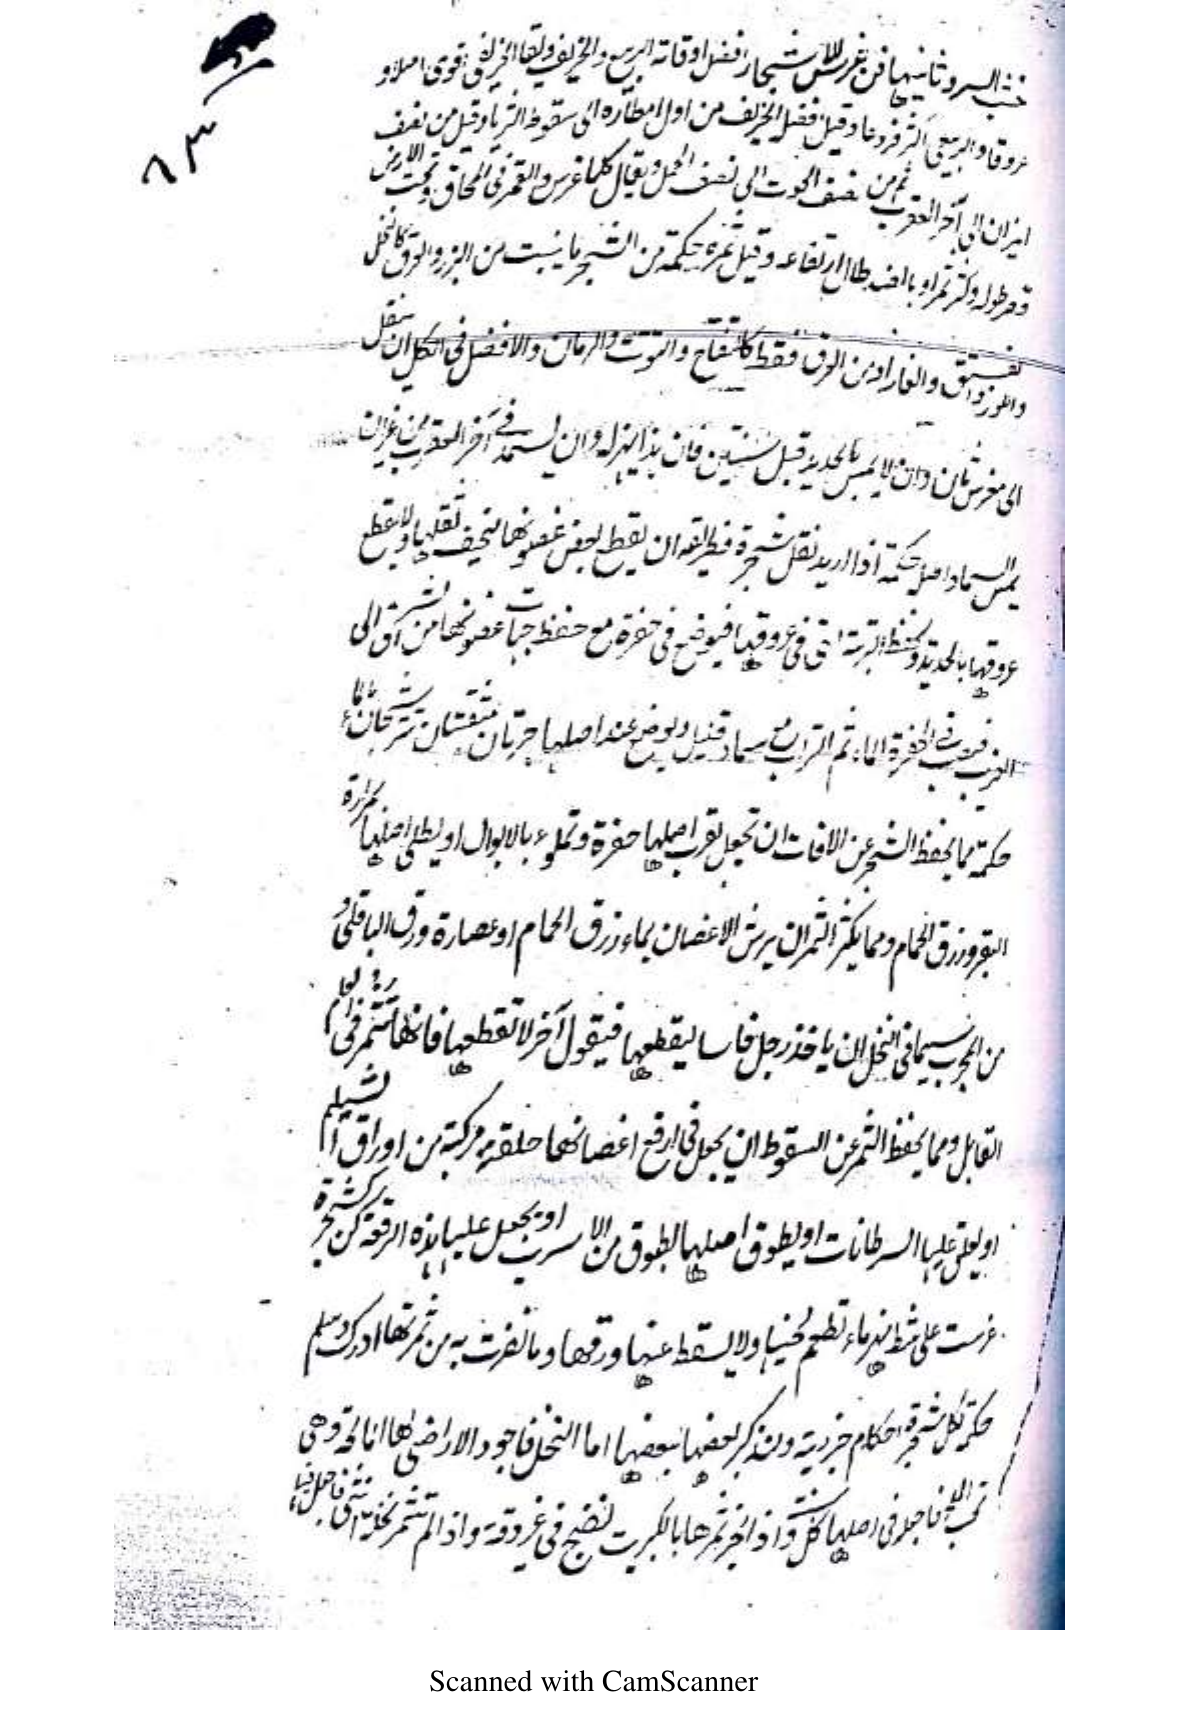 ٨٣
خشب السرو ثانيها فن غرس الاشجار افضل اوقاته الربيع والخريف ولقاء الخريفى اقوى اصلا و
عروقا والربيعى اكثر فروعا وقيل فضل الخريف من اول امطاره الى سقوط الثريا وقيل من نصف
الميزان الى آخر العقرب ثم من نصف الحوت الى نصف الحمل ويقال كلما غرس والقمر فى المحاق وتحت الارض
قصر طوله وكثر ثمره وبالضد طال ارتفاعه وقيل ثمره حكمة من الشجر ما ينبت من البزر والعرق كالنخل
واللوز والفستق والغار او من العرق فقط كالتفاح والتوت والرمان والافضل فى الكل ان ينقل
الى مغرس ثان وان لا يمس بالحديد قبل سنتين فان هذا يهزله وان يسمد فى آخر العقرب من غير ان
يمس السماد اصله حكمة اذا اريد نقل شجرة فطريقه ان يقطع بعض غصونها لتخف ثقلها ولا يقطع
عروقها بالحديد ويحفظ التربة التى فى عروقها فيوضع فى حفرة مع حفظ جهات غصونها من الشرق الى
الغرب فيصب فى الحفرة الماء ثم التراب مع سماد قليل ويوضع عند اصلها جرتان مثقبتان تترشحان ماء
حكمة مما يحفظ الشجر عن الافات ان تجعل بقرب اصلها حفرة وتملوء بالابوال او يطلى اصلها بمرارة
البقر وزرق الحمام ومما يكثر الثمر ان يرش الاغصان بماء زرق الحمام او عصارة ورق الباقلى و
من المجرب سيما فى النخل ان ياخذ رجل فاسا ليقطعها فيقول آخر لا تقطعها فانها تثمر فى العام
القابل ومما يحفظ الثمر عن السقوط ان يجعل فى ارفع اغصانها حلقة مركبة من اوراق الشيلم
او يعلق عليها السرطانات او يطوق اصلها بطوق من الاسرب او يجعل عليها هذه الرقعة كن كشجرة
غرست على شط نهر ماء تطعم لحينها ولا يسقط عنها ورقها وما نفرت به من ثمرتها ادرك وسلم
حكمة لكل شجرة احكام جزوية ولنذكر بعضها اما النخل فاجود الاراضى لها المالحة وهى
تحب فاجعله فى اصلها كل سنة واذا بخر ثمرها بالكبريت نضج فى عروقه واذا لم تثمر نخلة انثى فاجعل فيها
Scanned with CamScanner